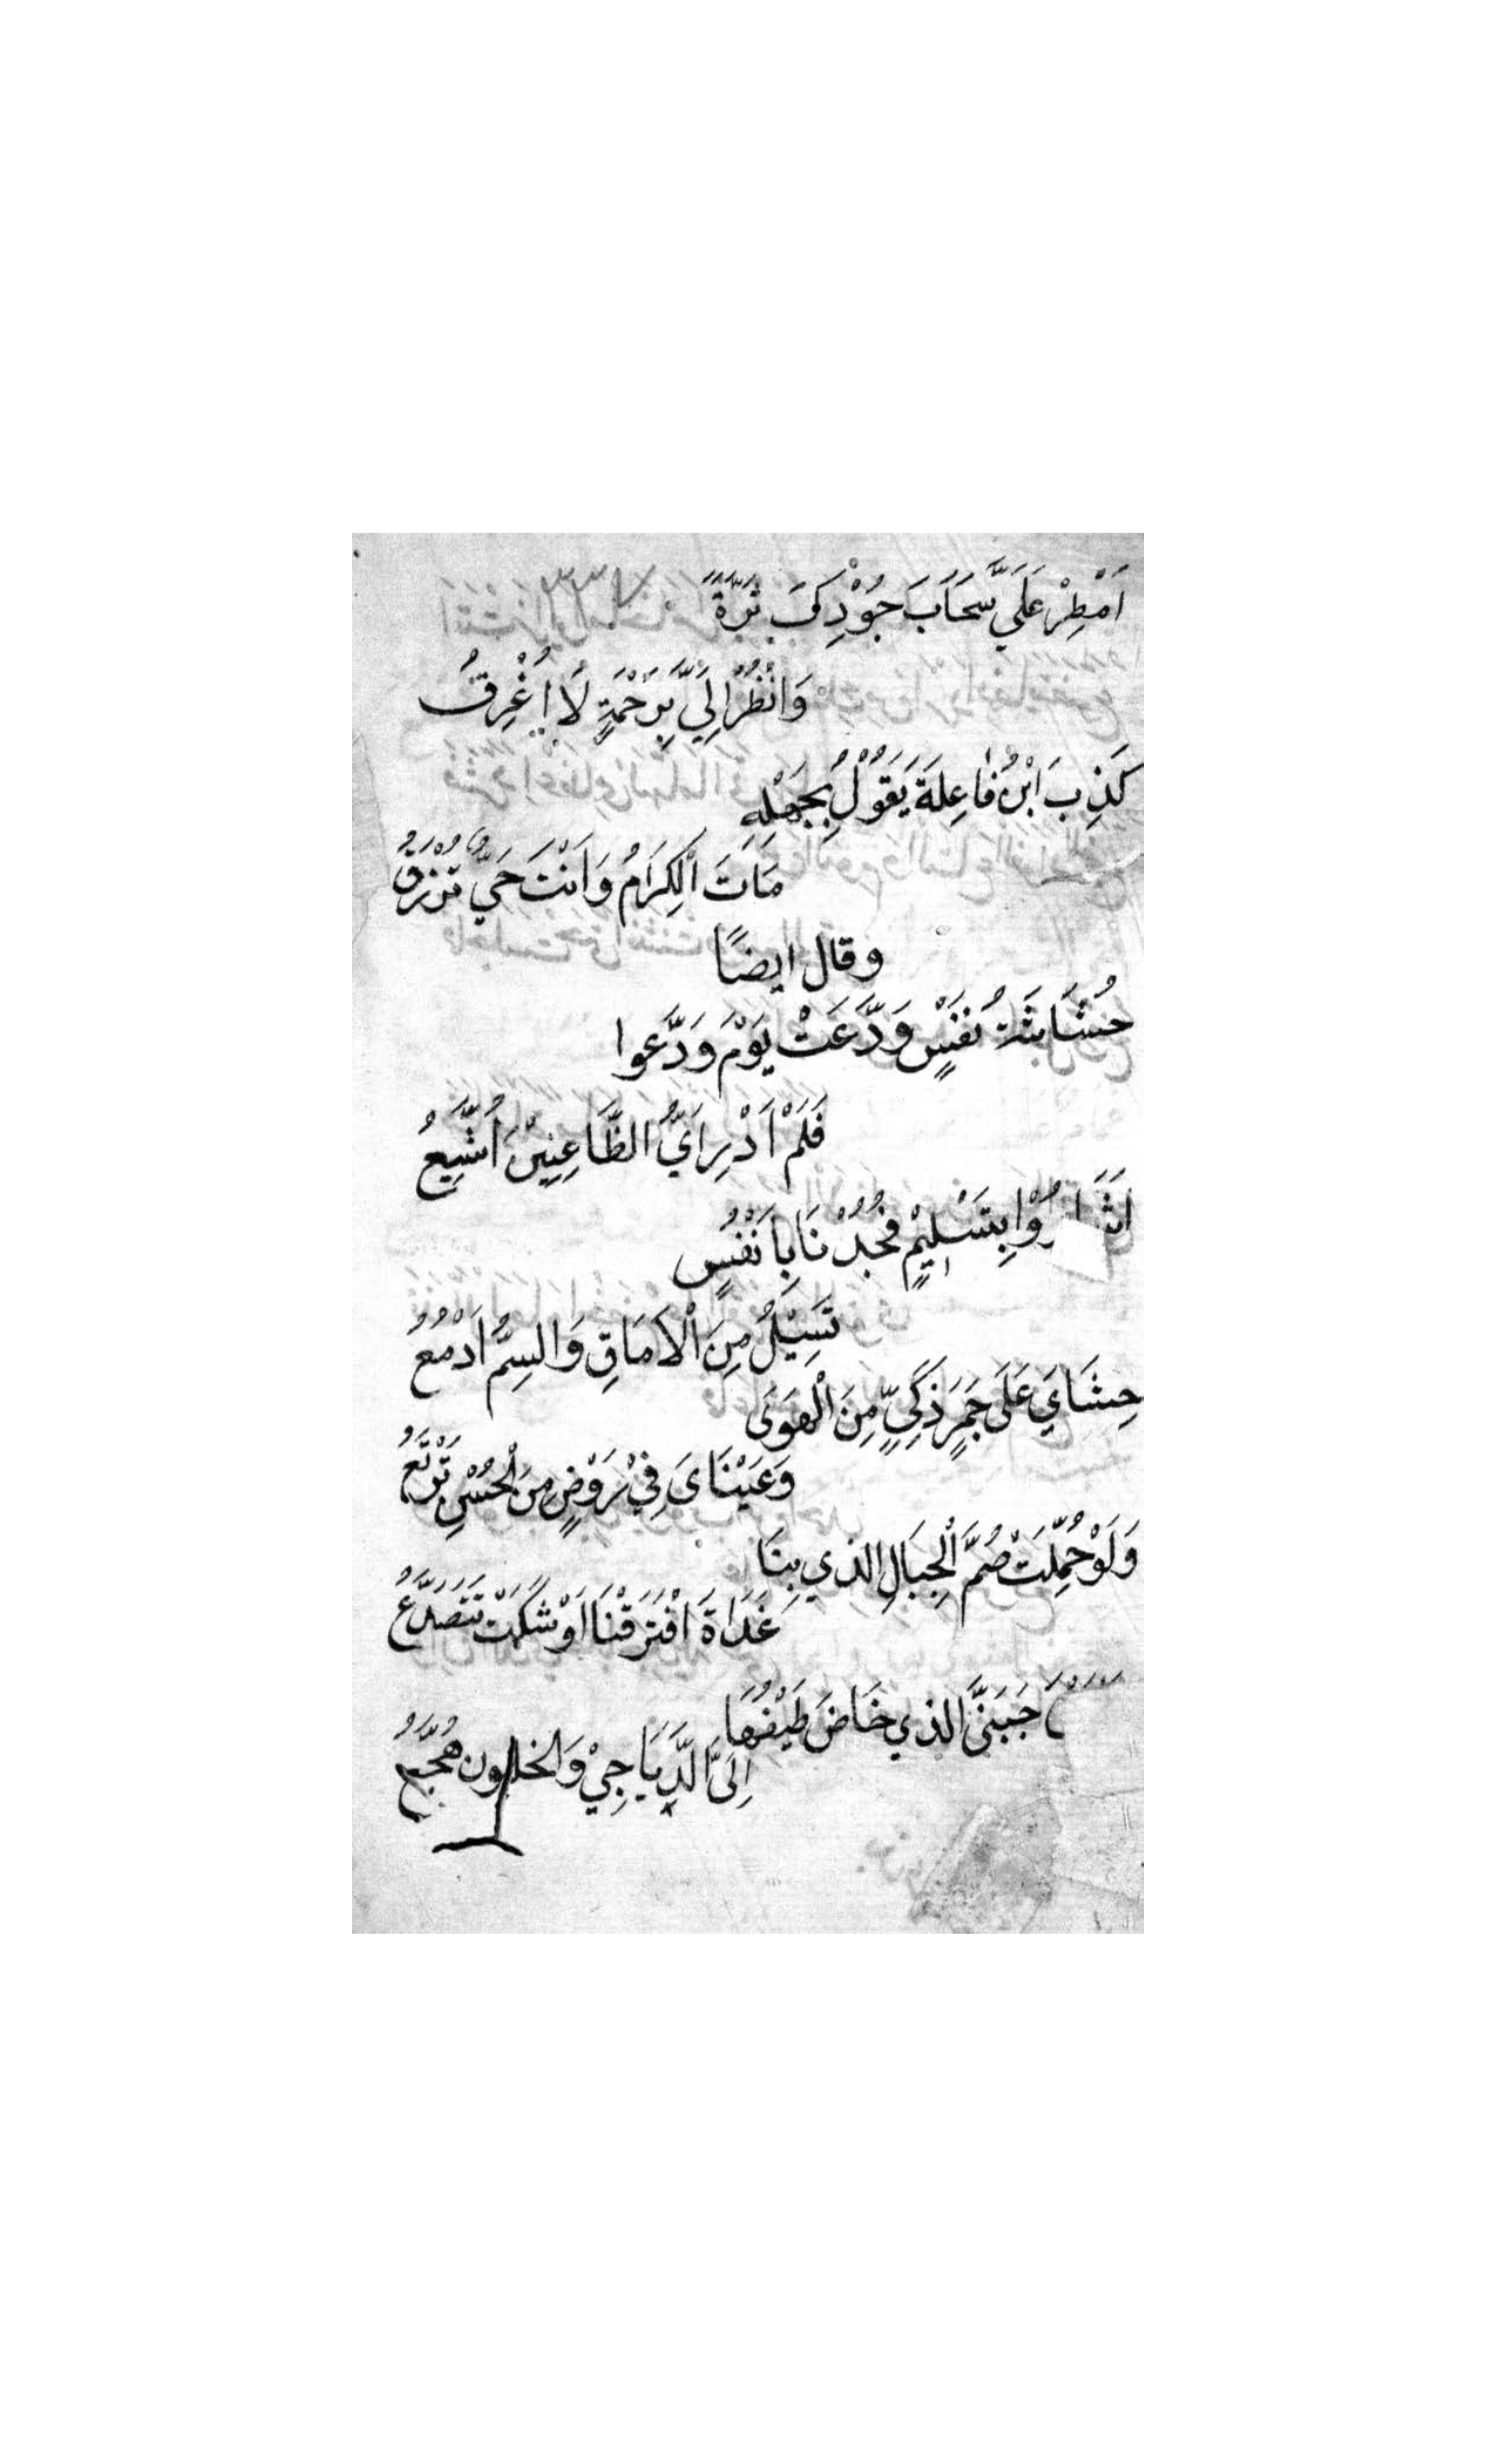 اَمْطِرْ عَلَيَّ سَحَابَ جُوْدِكَ ثَرَّةً
وَانْظُرْ اِلَيَّ بِرَحْمَةٍ لَا اُغْرِقُ
كَذِبَ ابْنُ فَاعِلَةَ يَقُوْلُ بِجَهْلِهِ
مَاتَ الْكِرَامُ وَاَنْتَ حَيٌّ تُرْزَقُ
وقال ايضًا
حُشَاشَةُ نَفْسٍ وَدَّعَتْ يَوْمَ وَدَّعوا
فَلَمْ اَدْرِ اَيَّ الظَّاعِنِيْنَ اُشَيِّعُ
اَشَارُوْا بِتَسْلِيْمٍ فَجُدْنَا بِاَنْفُسٍ
تَسِيْلُ مِنَ الْاَمَاقِ وَالسِمُّ اَدْمُعُ
حِشَايَ عَلَى جَمَرٍ ذَكِيٍّ مِنَ الْهَوَى
وَعَيْنَايَ فِيْ رَوْضٍ مِنَ الْحُسْنِ تَرْتَعُ
وَلَوْ حُمِّلَتْ صُمَّ الْجِبَالِ الذي بِنَا
غَدَاةَ افْتَرَقْنَا اَوْشَكَتْ تَتَصَدَّعُ
جَبَنَيَّ الذي خَاضَ طَيْفُهَا
اِلَىَّ الدَّيَاجِيْ وَالخليون هُجَّعُ